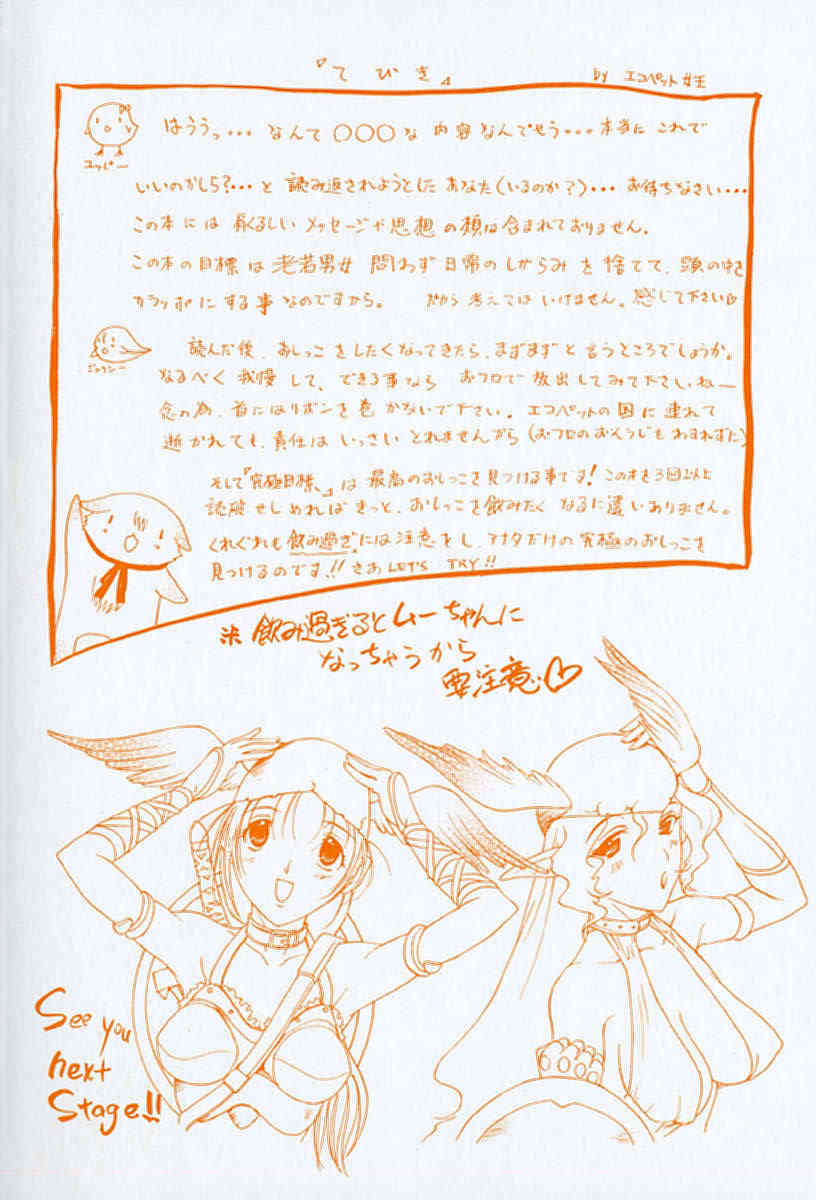 『てびき』
by エコペット女王
はううっ・・・なんて○○○な内容なんでせう・・・本当にこれで
ユッピー
いいのかしら?・・・と読み返されようとしたあなた(いるのか?)・・・お待ちなさい・・・
この本には 苦しい メッセージや思想の類は含まれておりません。
この本の目標は老若男女問わず日常のしがらみを捨てて、頭の中を
カラッポにする事なのですから。 だから考えてはいけません。感じて下さい
読んだ後、おしっこをしたくなってきたら、まずまずと言うところでしょうか。
なるべく我慢して、できる事なら お フロで放出してみて下さいねー
念の為、首にはリボンを巻かないで下さい。エコペットの国に連れて
逝かれても、責任はいっさいとれませんから(おフロのおそうじもわすれずに)
そして『究極目標』は最高のおしっこを見つける事です!この本を3回以上
読破せしめればきっと、おしっこを飲みたくなるに違いありません。
くれぐれも飲み過ぎには注意をし、アナタだけの究極のおしっこを
見つけるのです!!さあLET'S TRY!!
※飲み過ぎるとムーちゃんに
なっちゃうから
要注意♡
See you
next
Stage!!